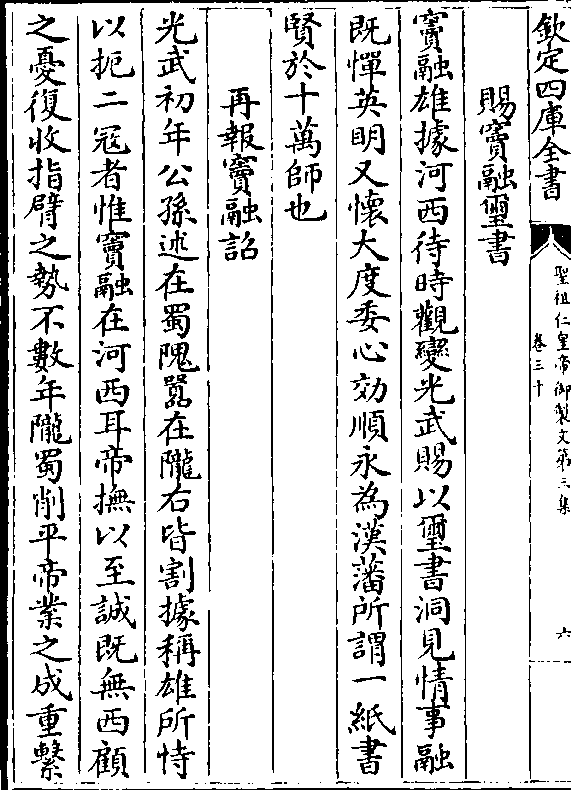 欽定四庫全書
聖祖仁皇帝御製文第三集
卷三十
六
賜竇融璽書
竇融雄據河西待時觀變光武賜以璽書洞見情事融
既憚英明又懷大度委心効順永為漢藩所謂一紙書
賢於十萬師也
再報竇融詔
光武初年公孫述在蜀隗囂在隴右皆割據稱雄所恃
以扼二冦者惟竇融在河西耳帝撫以至誠既無西顧
之憂復收指臂之勢不數年隴蜀削平帝業之成重繫